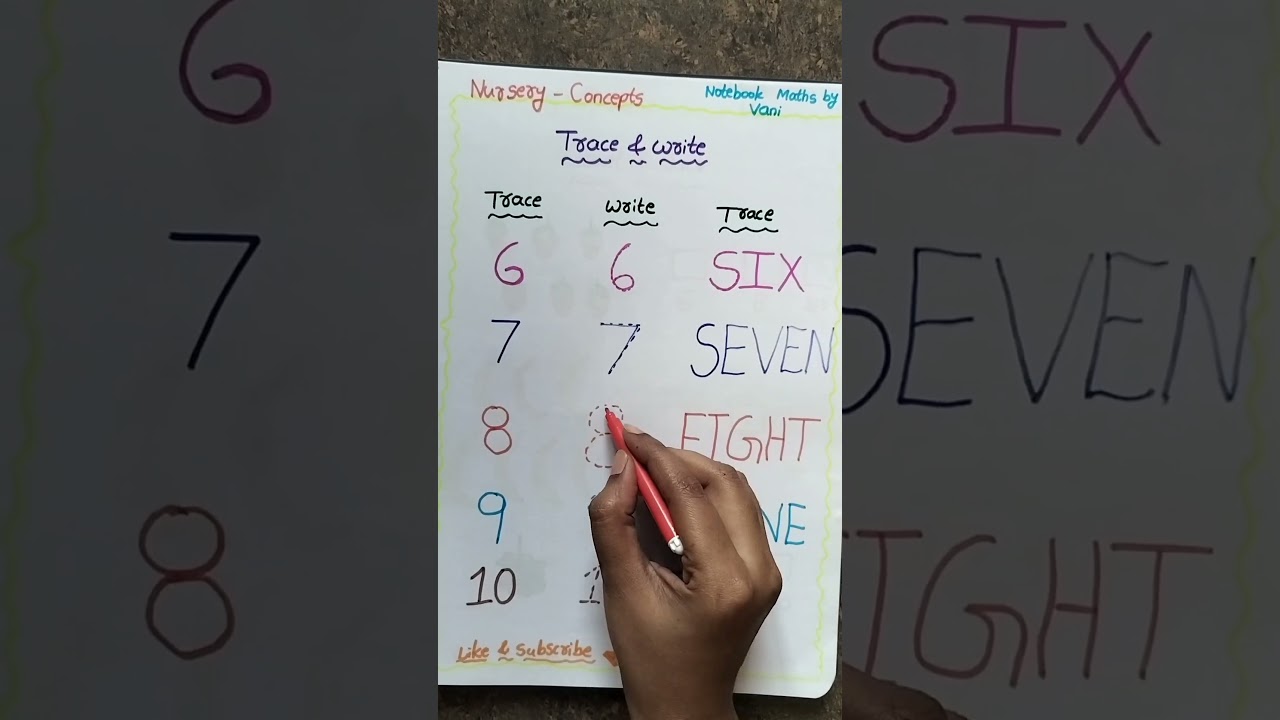 Nursery - Concepts
Notebook Maths by
Vani
Trace & write
Trace write Trace
6 6 SIX
7 7 SEVEN
8 8 EIGHT
9
10
Like & Subscribe